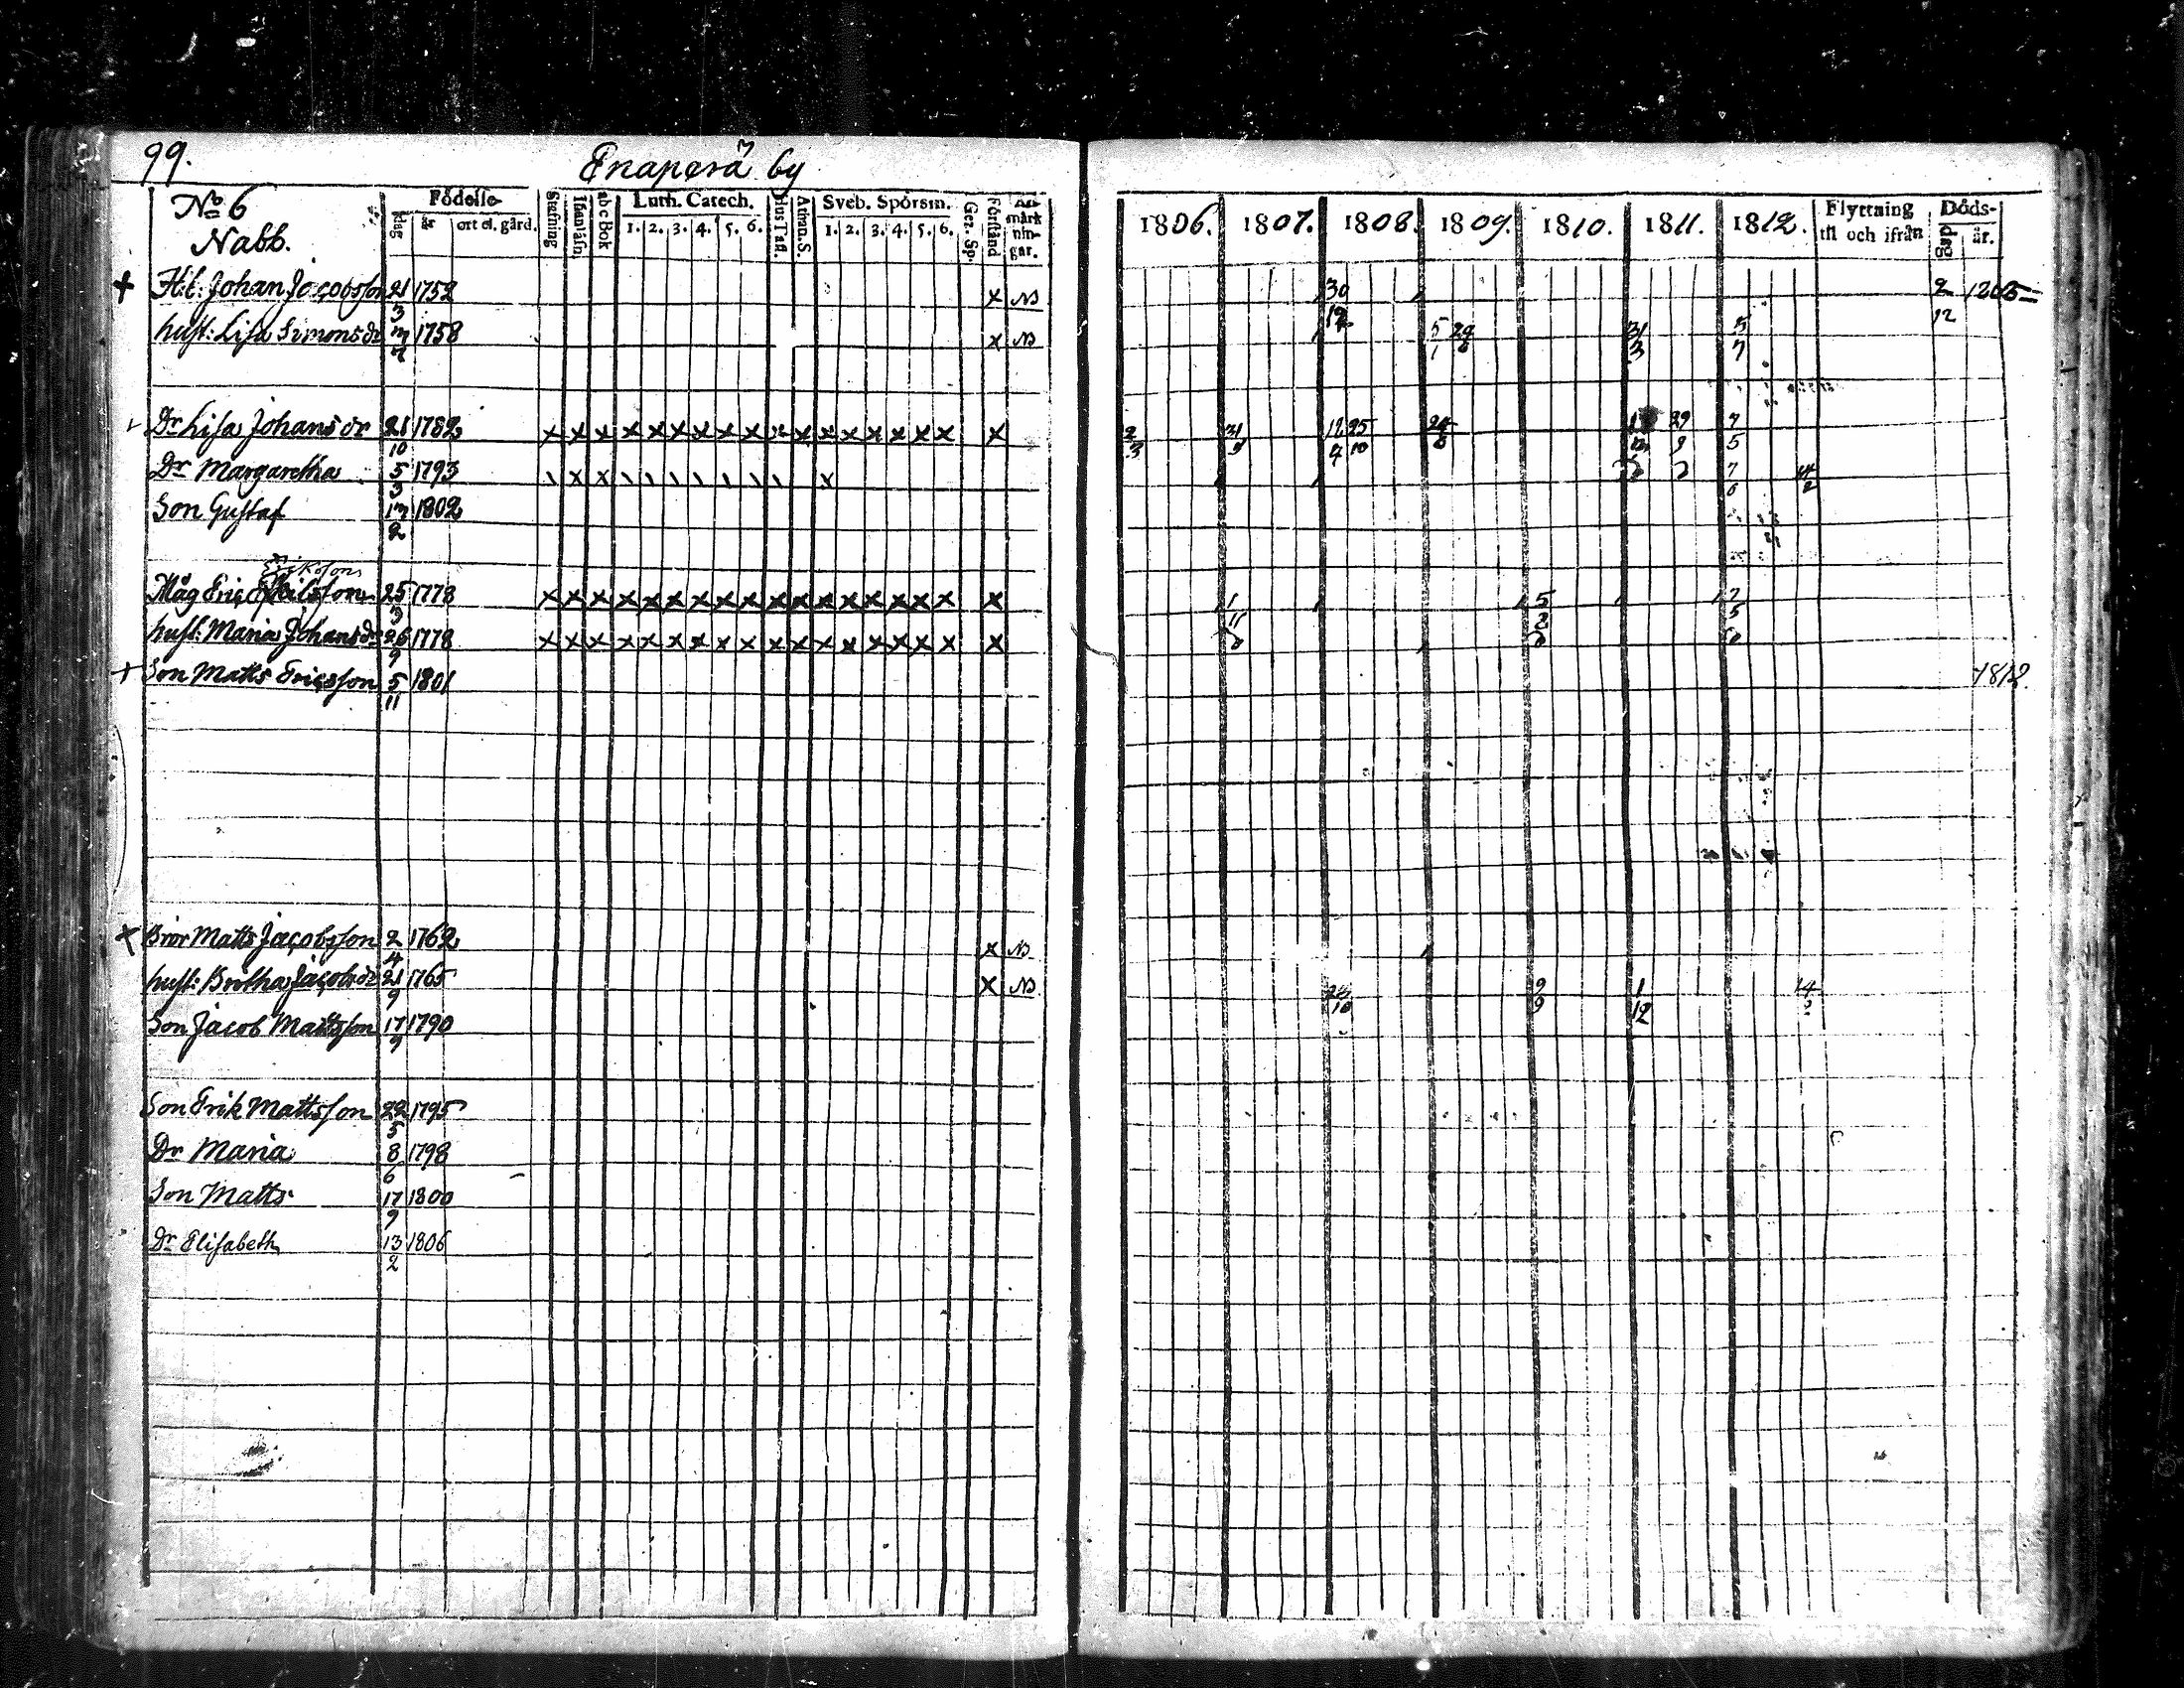 99. Enaperä by
No 6
Nabb.
Födelse-
dag år ort el. gård.
Stafning
abc Bok
Luth. Catech.
1. 2. 3. 4. 5. 6.
Hus Tafl.
Athan. S.
Sveb. Spörsm.
1. 2. 3. 4. 5. 6.
Gez. Sp.
Förstånd
An-
märk
nin-
gar.
1806. 1807. 1808. 1809. 1810. 1811. 1812. Flyttning
til och ifrån
Döds-
dag år.
+ Johan Jacobsson 21/3 1752 x 30 2/12
hust: Lisa Simonsdr 1758 x 5/1 31/3 5/7
Dr Lisa Johansdr 21/10 1782 x x x x x x x x x x x x x x x x x x 2/3 25/10 29/9 7/5
Dr Margaretha 5/3 1793 7/6 14/2
Son Gustaf 17/2 1802
Eriksson
Måg Eric 25/3 1778 x x x x x x x x x x x x x x x x x x 1/11 7/5
hust: Maria Johansdr 26/9 1778 x x x x x x x x x x x x x x x x x x
+ Son Matts Ericsson 5/11 1801 1812.
+ Bror Matts Jacobsson 2/4 1762 x
hust: Britha Jacobsdr 21/9 1765 x 9/9 1/12 14
Son Jacob Mattsson 17 1790
Son Erik Mattsson 22/5 1795
Dr Maria 8/6 1798
Son Matts 17/9 1800
Dr Elisabeth 13/2 1806